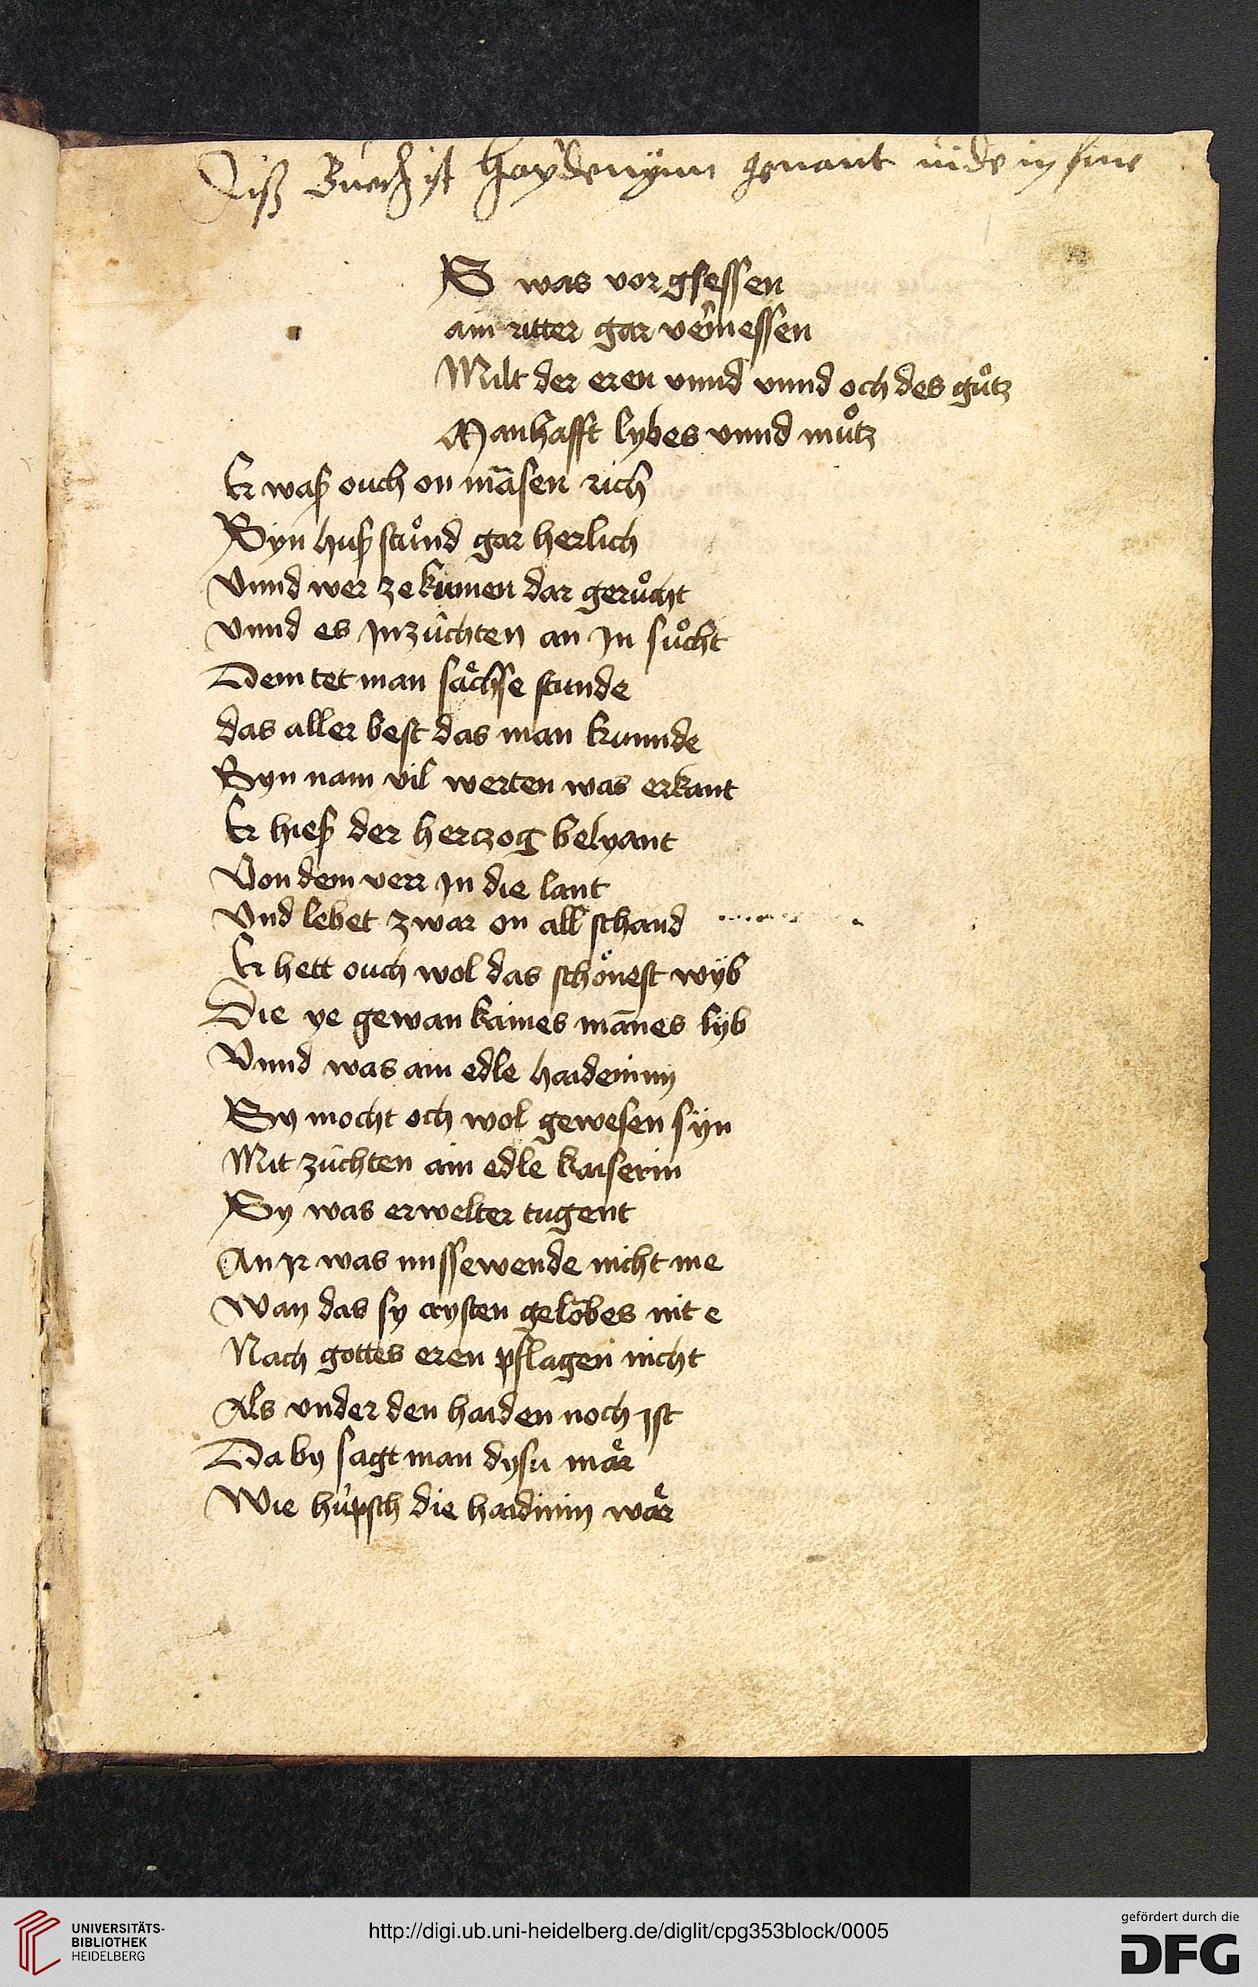 Diß Buech ist Haÿdenÿnn genant vide in fine
S was vor gsessen
ain ritter gar vermessen
Milt der eren vnnd vnnd och des guͦtz
Manhafft lybes vnnd muͦtz
Er waß ouch on māsen rich
Syn huß stuͦnd gar herlich
Vnnd wer ze kumen dar geruͦcht
vnnd es Inzúchten an In suͦcht
Dem tet man saͤchse stunde
das aller best das man kunnde
Syn nam vil werten was erkant
Er hieß der herczog belyant
Von dem verr In die lant
Vnd lebet zwar on all schand
Er hett ouch wol das schoͤnest wÿb
Die ye gewan kaines mānes lÿb
Vnnd was ain edle haideninn
Sy mocht och wol gewesen sÿn
Mit zúchten ain edle kaiserin
Sy was erwelter tugent
An Ir was missewende nicht me
Wan das sy crysten gelobes nit e
Nach gottes eren pflagen nicht
Als vnder den haiden noch Ist
Da by sagt man dysu maͤr
Wie húpsch die haidinin waͤr
UNIVERSITÄTS-
BIBLIOTHEK
HEIDELBERG
http://digi.ub.uni-heidelberg.de/diglit/cpg353block/0005
gefördert durch die
DFG